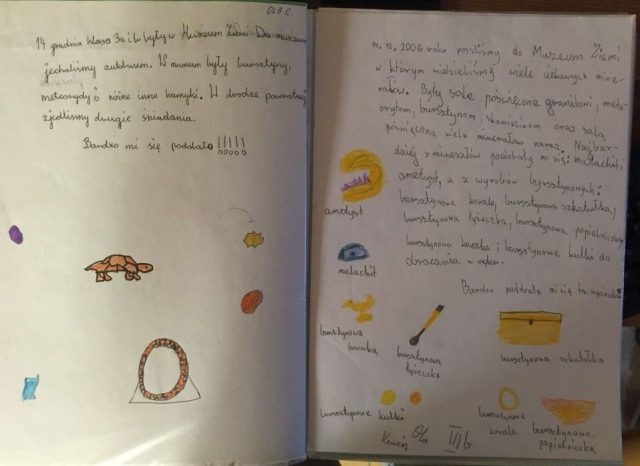 OLA C.
14 grudnia klasa 3a i b były w Muzeum Ziemi. Do muzeum
jechaliśmy autobusem. W muzeum były bursztyny,
meteoryty i różne inne kamyki. W drodze powrotnej
zjedliśmy drugie śniadania.
Bardzo mi się podobało!!!!!
14. 12. 2006 roku poszliśmy do Muzeum Ziemi
w którym widzieliśmy wiele ciekawych mine-
rałów. Były sale poświęcone granitowi, mete-
orytom, bursztynom, skamielinom oraz sala
poświęcona wielu minerałom naraz. Najbar-
dziej z minerałów podobały mi się: malachit i
ametyst, a z wyrobów bursztynowych:
bursztynowe korale, bursztynowa szkatułka,
bursztynowa łyżeczka, bursztynowa popielniczka,
bursztynowa kaczka i bursztynowe kulki do
obracania w ręku.
Bardzo podobała mi się ta wycieczka
ametyst
malachit
bursztynowa kaczka
bursztynowa łyżeczka
bursztynowa szkatułka
bursztynowe kulki
bursztynowe korale
bursztynowa popielniczka
Ola III b